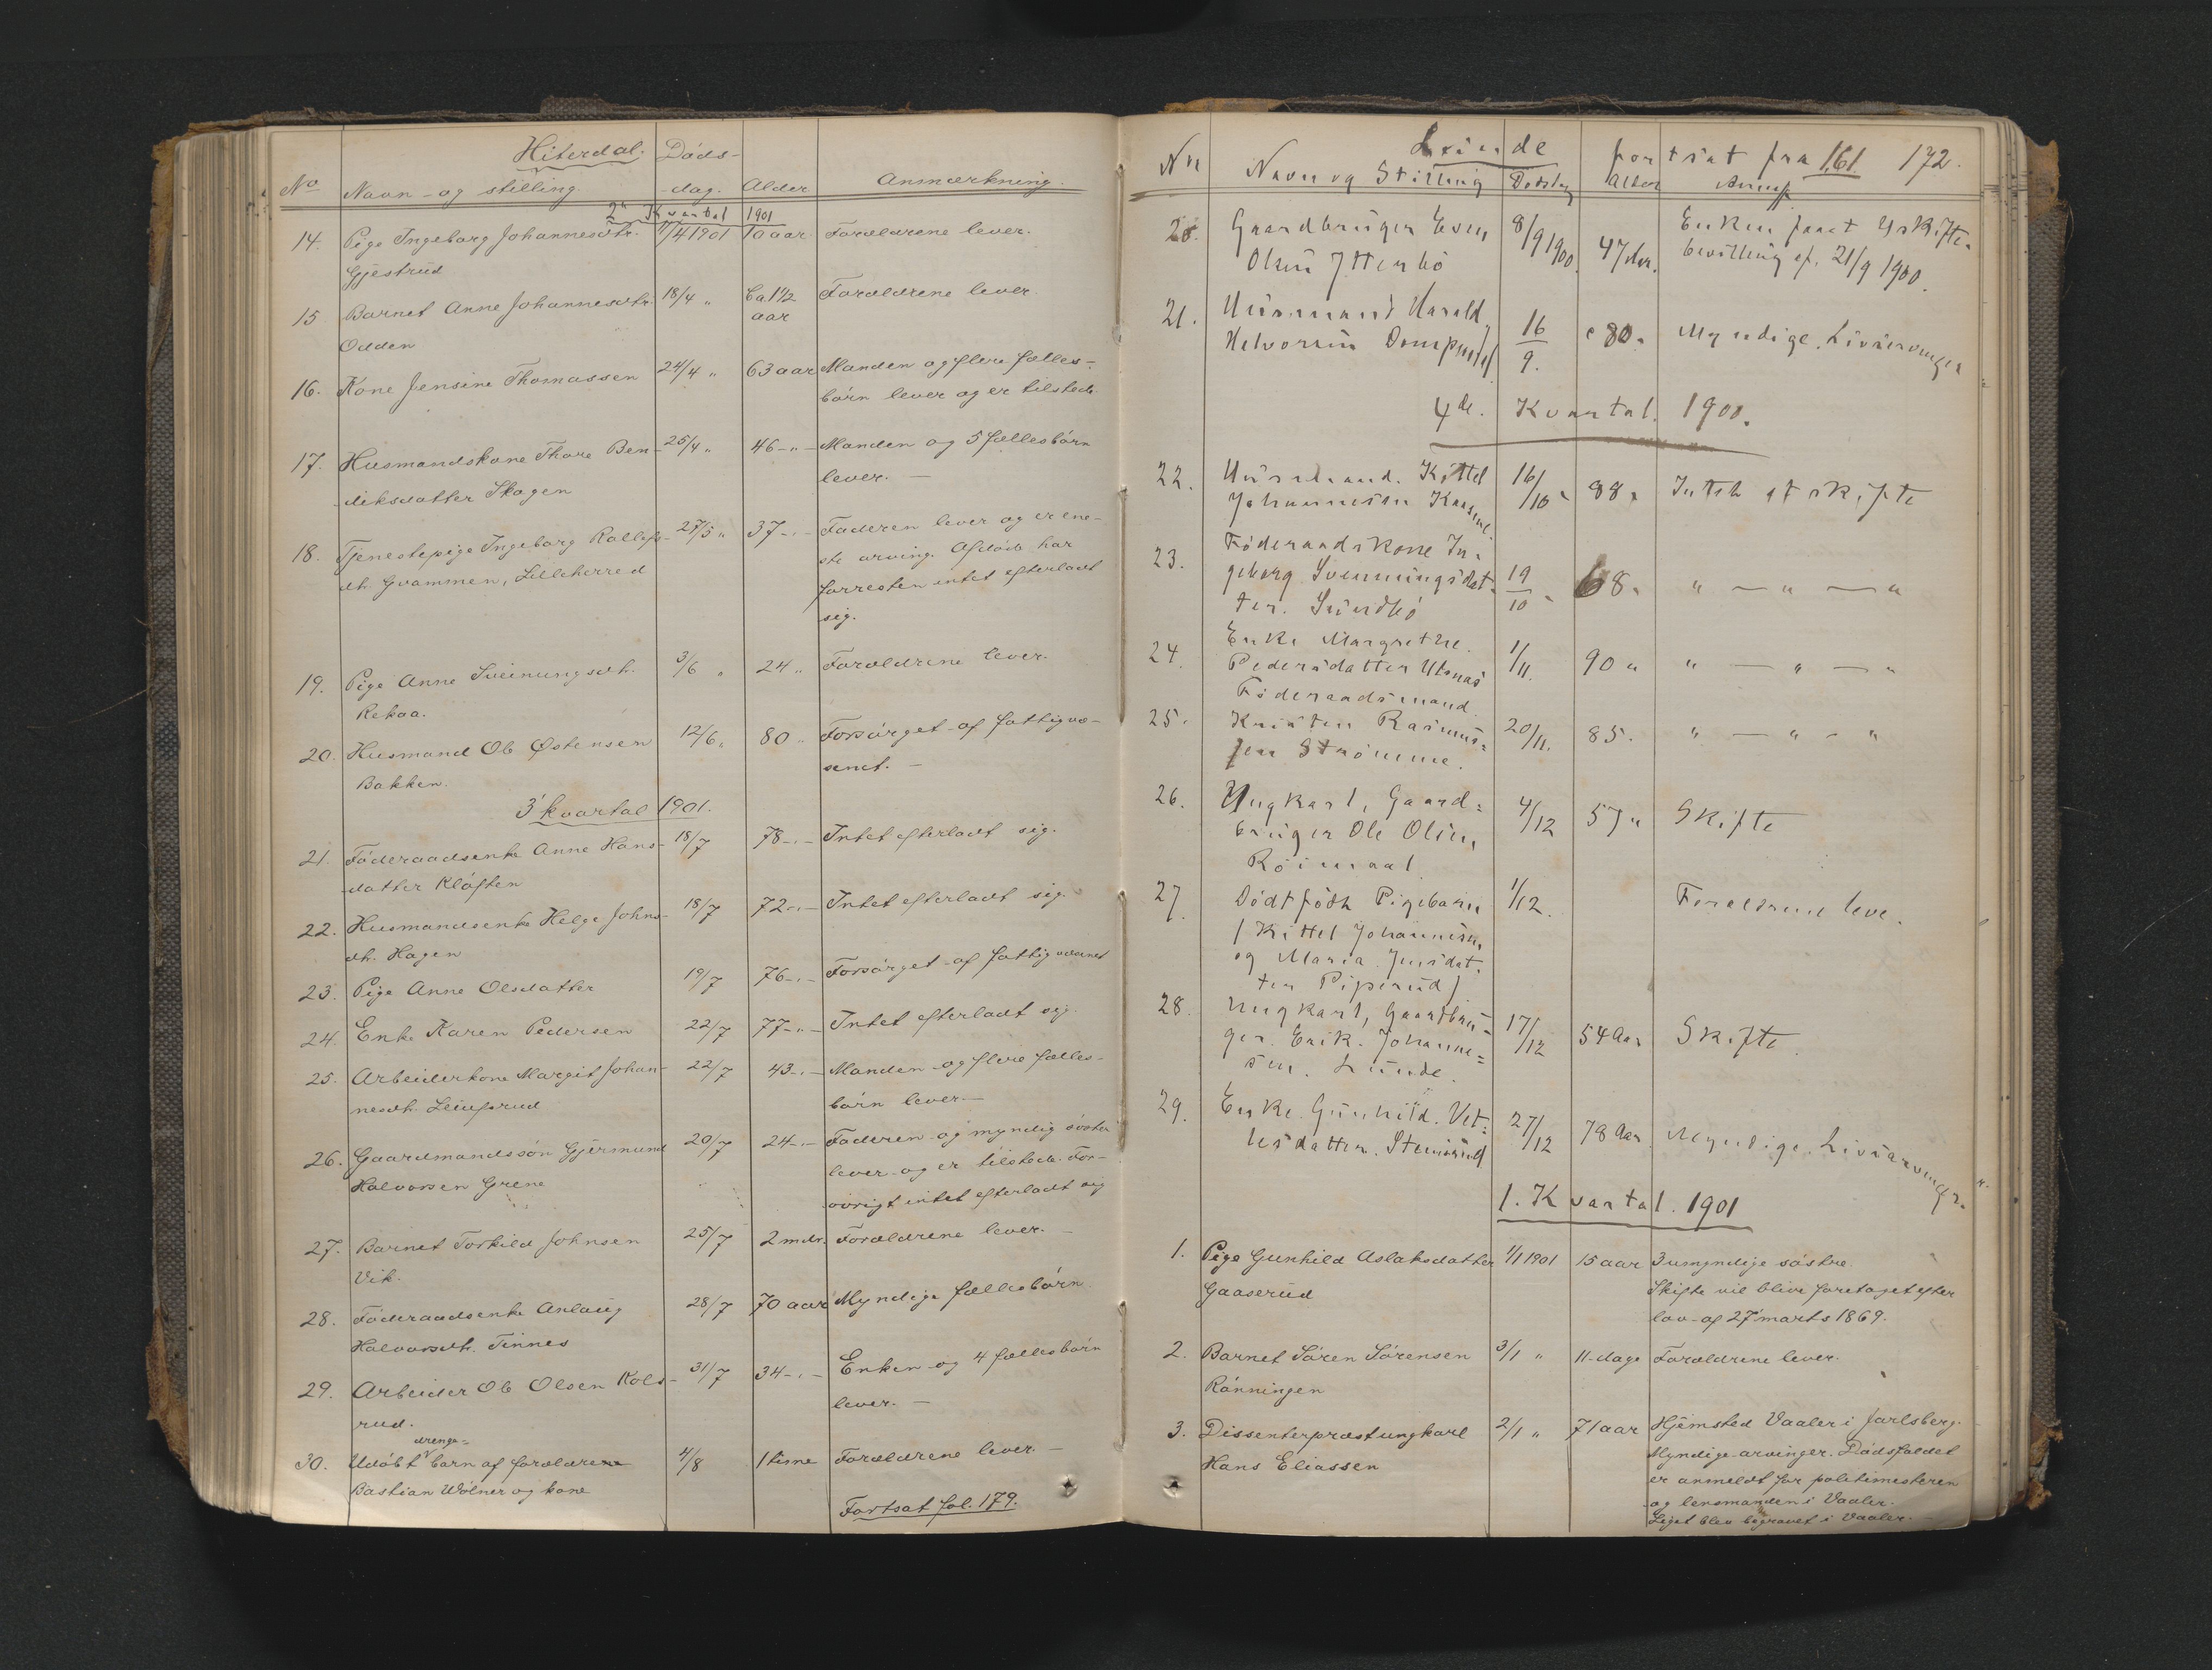 Hiterdal.
Døds-
No Navn og stilling. dag. Alder Anmærkning.
2' Kvartal 1901
14. Pige Ingeborg Johannesdtr. 1/4 1901 10 aar Forældrene lever.
Gjestrud
15 Barnet Anne Johannesdtr. 18/4 " Ca 1½ Forældrene lever.
Odden aar
16. Kone Jensine Thomassen 24/4 " 63 aar Manden og flere fælles-
børn lever og er tilstede.
17. Husmandskone Thore Ben- 25/4 " 46 - " - Manden og 5 fællesbørn
diksdatter Skogen lever. -
18. Tjenestepige Ingeborg Rollefs- 27/5 " 37 - " - Faderen lever og er ene-
dtr. Gvammen, Lilleherred ste arving. Afdøde har
forresten intet efterladt
sig.
19. Pige Anne Sveinungsdtr. 3/6 " 24 " Forældrene lever.
Rekaa.
20. Husmand Ole Østensen 12/6 " 80 " Forsørget af fattigvæ-
Bakken. senet. -
3' kvartal 1901.
21. Føderaadsenke Anne Hans- 18/7 78 - " - Intet efterladt sig.
datter Kløften
22. Husmandsenke Helge Johns- 18/7 72 - " - Intet efterladt sig.
dtr. Hagen
23. Pige Anne Olsdatter 19/7 76 - " - Forsørget af fattigvæsenet
24. Enke Karen Pedersen 22/7 77 - " - Intet efterladt sig.
25. Arbeiderkone Margit Johan- 22/7 43 - " - Manden og flere fælles-
nesdtr. børn lever. -
26. Gaardmandssøn Gjermund 20/7 24 - " - Faderen og myndig søster
Halvorsen Grene lever og er tilstede. For-
øvrigt intet efterladt sig
27. Barnet Torkild Johnsen 25/7 2 mdr. Forældrene lever. -
Vik.
28. Føderaadsenke Anlaug 28/7 70 aar Myndige fællesbørn.
Halvorsdtr. Tinnes
29. Arbeider Ole Olsen Kols- 31/7 34 - " - Enken og 4 fællesbørn
rud. lever. -
drenge-
30. Udøbt barn af forældrene 4/8 1 time Forældrene lever. -
Bastian Wølner og kone
Fortsat fol. 179.
Lunde fortsat fra 161. 172.
Nr Navn og Stilling Dødsdag Alder Anm.
20. Gaardbruger Even 8/9 1900. 47 Aar. Enken faaet Uskifte-
Olsen Ytterbø bevilling af. 21/9 1900.
21. Husmand Harald 16/9. 80 " Myndige Livsarvinger
Halvorsen
4de. Kvartal. 1900.
22. Husmand. Kittel 16/10 " 88 " Intet at skifte
Johannesen Kaasene.
23. Føderaadskone In-
geborg Svenningsdat- 19/10 " 68 " " — " — "
ter. Sundbø
24. Enke Margrethe. 1/11. 90 " " — " — "
Pedersdatter Utenas
Føderaadsmand
25. Kristen Rasmus- 20/11. 85. " — " - "
sen Strømme.
26. Ungkarl, Gaard- 4/12 57 " Skifte
bruger Ole Olsen,
Røimaal
27. Dødfødt Pigebarn 1/12. Forældrene leve.
( Kittel Johannesen
og Maria Jensdat-
ter Piperud )
28. Ungkarl, Gaardbru- 17/12 54 Aar Skifte.
ger. Erik. Johanne-
sen. Lunde.
29. Enke. Gunhild. Vet- 27/12 78 Aar Myndige. Livsarvinger.
lesdatter. Stensrud
1. Kvartal. 1901
1. Pige Gunhild Aslaksdatter 1/1 1901 15 aar 3 umyndige søstre.
Gaaserud Skifte vil blive foretaget efter
lov af 27' marts 1869.
2. Barnet Søren Sørensen 3/1 " 11 dage Forældrene lever.
Rønningen
3. Dissenterprest ungkarl 2/1 " 71 aar Hjemsted Vaaler i Jarlsberg.
Hans Eliassen Myndige arvinger. Dødsfaldet
er anmeldt for politimesteren
og lensmanden i Vaaler.
Liget blev begravet i Vaaler. -